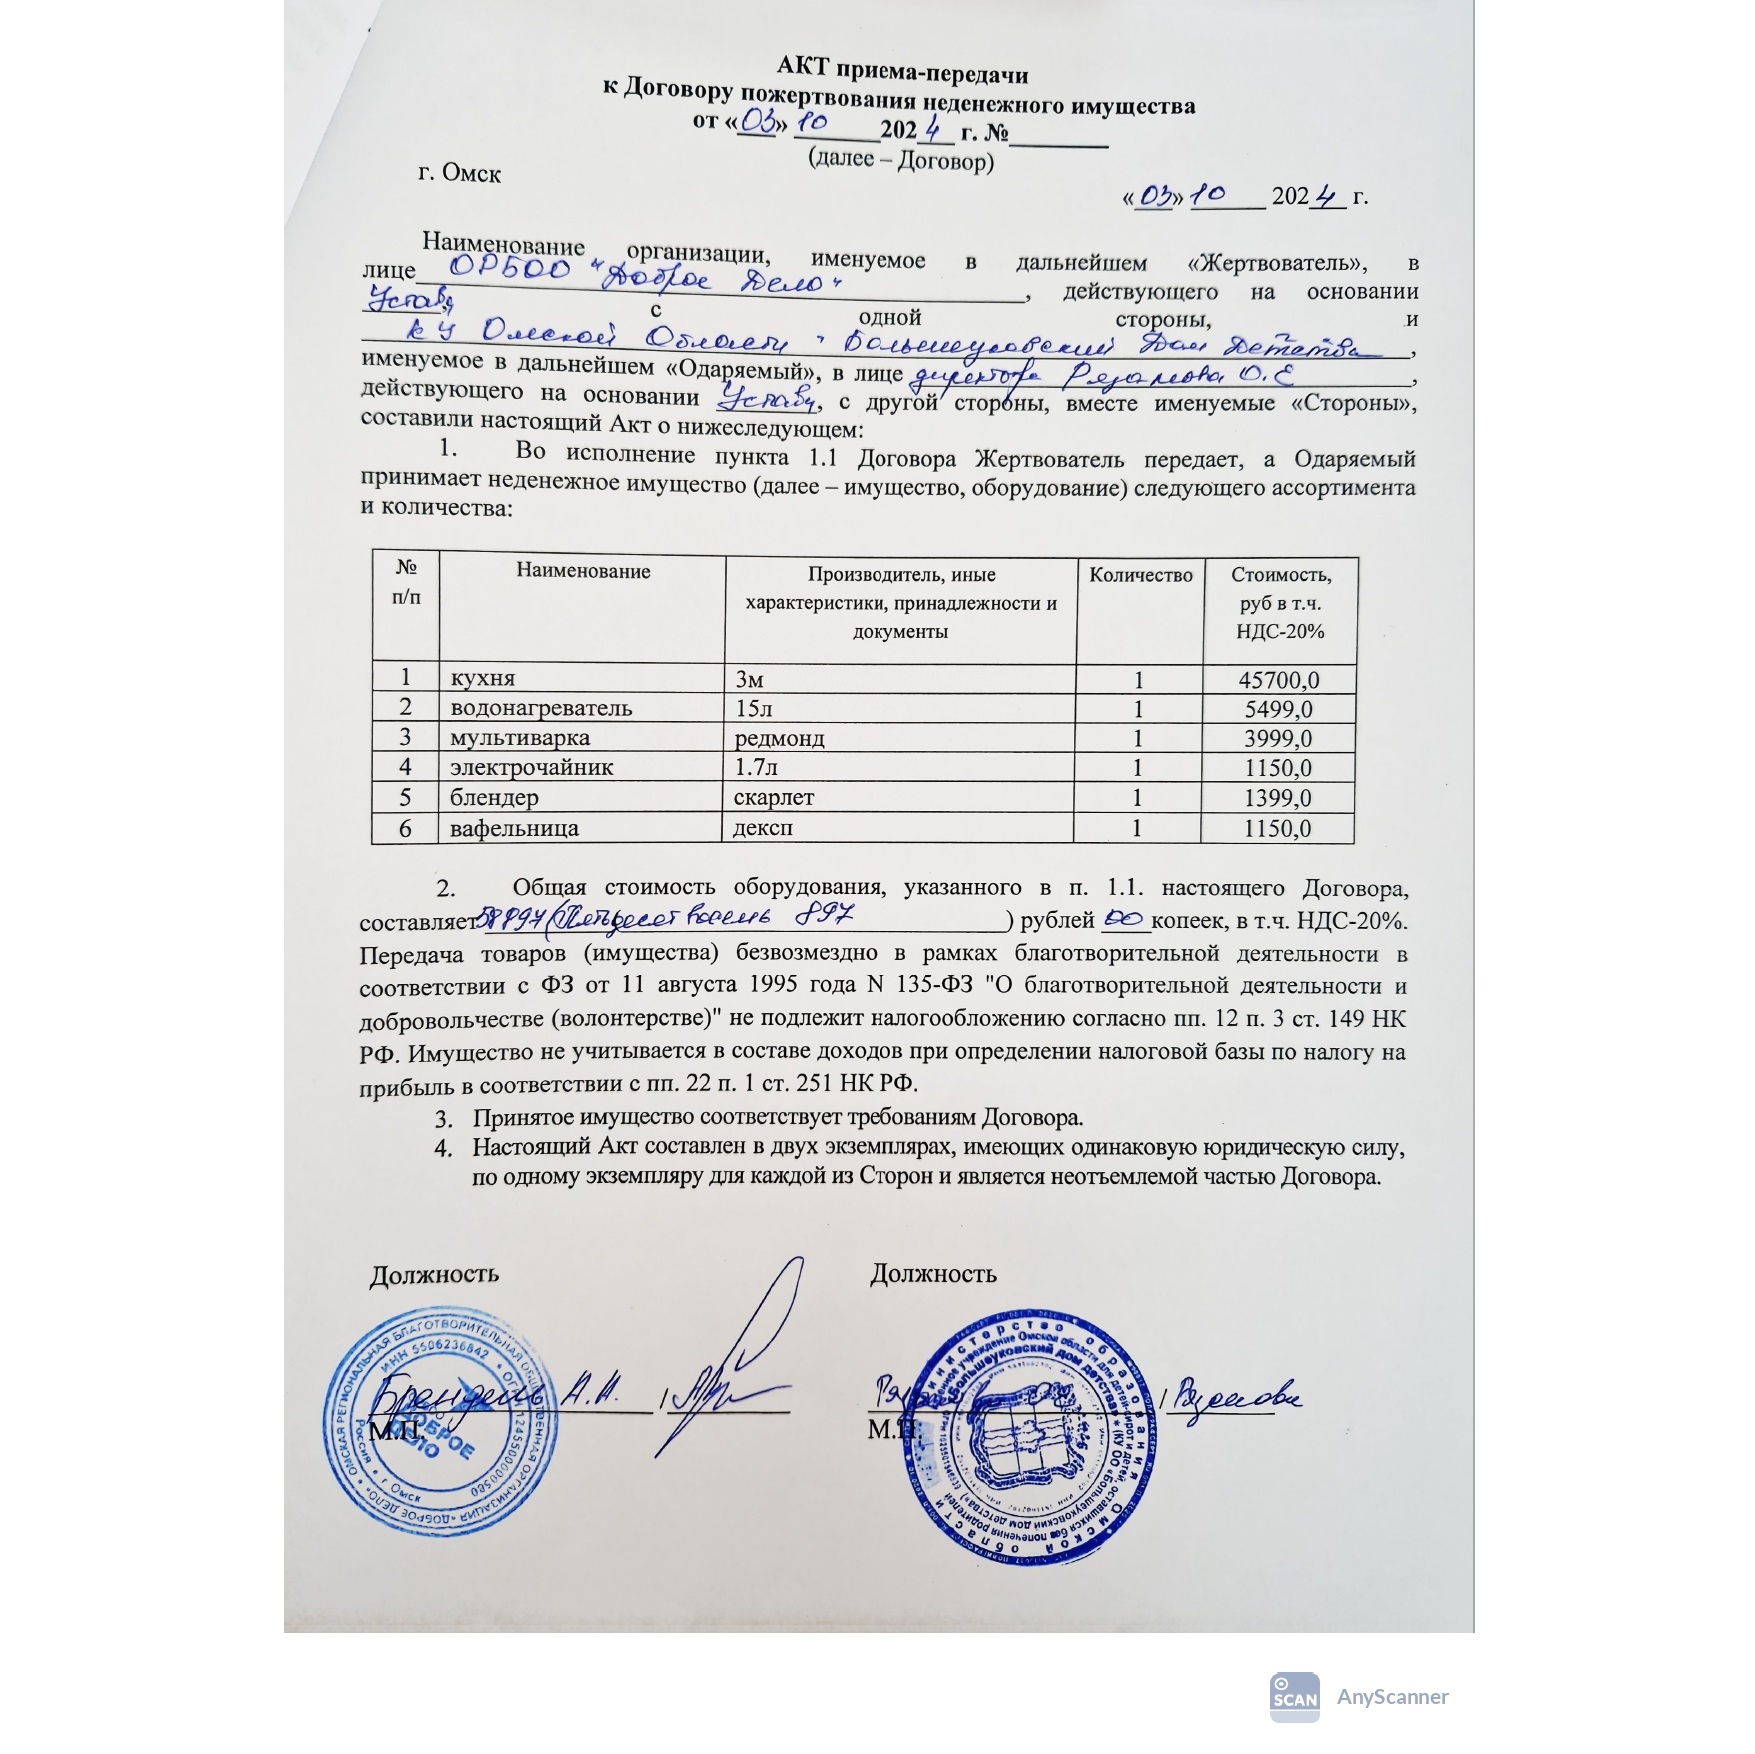 АКТ приема-передачи
к Договору пожертвования неденежного имущества
от «03» 10 2024 г. №
(далее – Договор)
г. Омск
«03» 10 2024 г.
Наименование организации, именуемое в дальнейшем «Жертвователь», в
лице ОРБОО "Доброе Дело" , действующего на основании
Устава, с одной стороны, и
КУ Омской Области "Большеуковский Дом Детства ,
именуемое в дальнейшем «Одаряемый», в лице директора Рязанова О.Е ,
действующего на основании Устава, с другой стороны, вместе именуемые «Стороны»,
составили настоящий Акт о нижеследующем:
1. Во исполнение пункта 1.1 Договора Жертвователь передает, а Одаряемый
принимает неденежное имущество (далее – имущество, оборудование) следующего ассортимента
и количества:
№ п/п Наименование Производитель, иные характеристики, принадлежности и документы Количество Стоимость, руб в т.ч. НДС-20%
1 кухня 3м 1 45700,0
2 водонагреватель 15л 1 5499,0
3 мультиварка редмонд 1 3999,0
4 электрочайник 1.7л 1 1150,0
5 блендер скарлет 1 1399,0
6 вафельница дексп 1 1150,0
2. Общая стоимость оборудования, указанного в п. 1.1. настоящего Договора,
составляет 58897 (Пятьдесят восемь 897 ) рублей 00 копеек, в т.ч. НДС-20%.
Передача товаров (имущества) безвозмездно в рамках благотворительной деятельности в
соответствии с ФЗ от 11 августа 1995 года N 135-ФЗ "О благотворительной деятельности и
добровольчестве (волонтерстве)" не подлежит налогообложению согласно пп. 12 п. 3 ст. 149 НК
РФ. Имущество не учитывается в составе доходов при определении налоговой базы по налогу на
прибыль в соответствии с пп. 22 п. 1 ст. 251 НК РФ.
3. Принятое имущество соответствует требованиям Договора.
4. Настоящий Акт составлен в двух экземплярах, имеющих одинаковую юридическую силу,
по одному экземпляру для каждой из Сторон и является неотъемлемой частью Договора.
Должность Должность
Брендель А.А. / /
М.П. М.П.
ОМСКАЯ РЕГИОНАЛЬНАЯ БЛАГОТВОРИТЕЛЬНАЯ ОБЩЕСТВЕННАЯ ОРГАНИЗАЦИЯ «ДОБРОЕ ДЕЛО»
ИНН 5506236842 ОГРН 1245500000580
Россия г Омск
ДОБРОЕ
ДЕЛО
Министерство образования Омской области
учреждение Омской области для детей-сирот и детей, оставшихся без попечения родителей
«Большеуковский дом детства» (КУ ОО «Большеуковский дом детства»)
SCAN AnyScanner